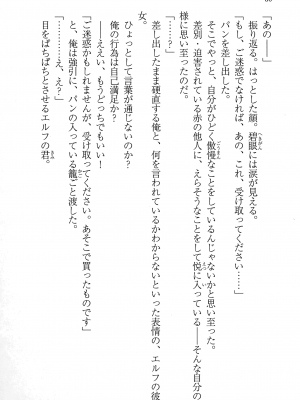 「あの――」
振り返る。はっとした顔。碧眼には涙が見える。
「もし、ご迷惑でなければ、あの、これ、受け取ってください……」
パンを差し出した。
そこでやっと、自分がひどく傲慢なことをしているんじゃないかと思い至った。
差別・迫害されている赤の他人に、えらそうなことをして悦に入っている――そんな自分の
様に思い至ったのだ。
「……？」
差し出したまま硬直する俺と、何を言われているかわからないといった表情の、エルフの彼
女。
ひょっとして言葉が通じないのか？
俺の行為は自己満足か？
――ええい、もうどっちでもいい！
「ご迷惑かもしれませんが、受け取ってください。あそこで買ったものです」
と、俺は強引に、パンの入っている籠ごと渡した。
「………え、え？」
目をぱちぱちとさせるエルフの君。